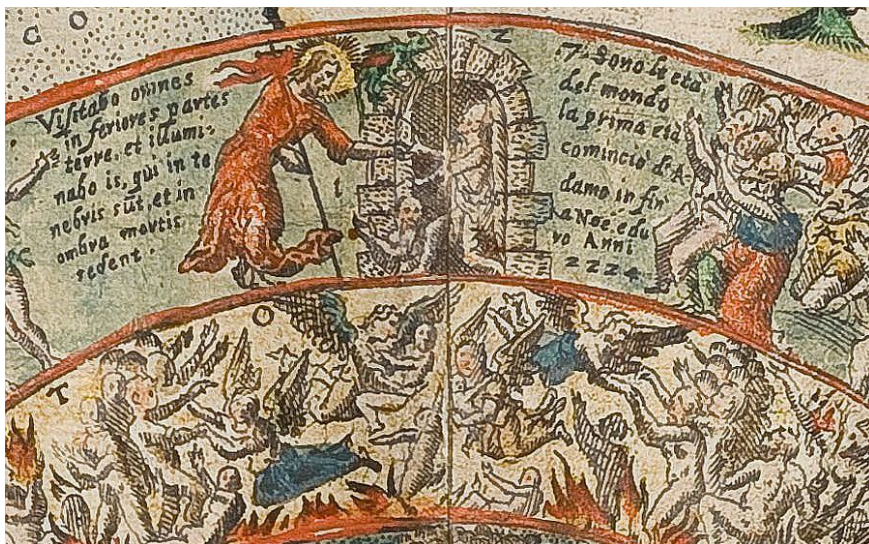 C O
Visitabo omnes
inferiores partes
terre, et illumi-
nabo is, qui in te
nebris sūt, et in
ombra mortis.
redent.
1
2
7. Sono le età,
del mondo
la prima età
cominciò d'A
damo in fin
a Noè, edu
ro Anni
2224
T O